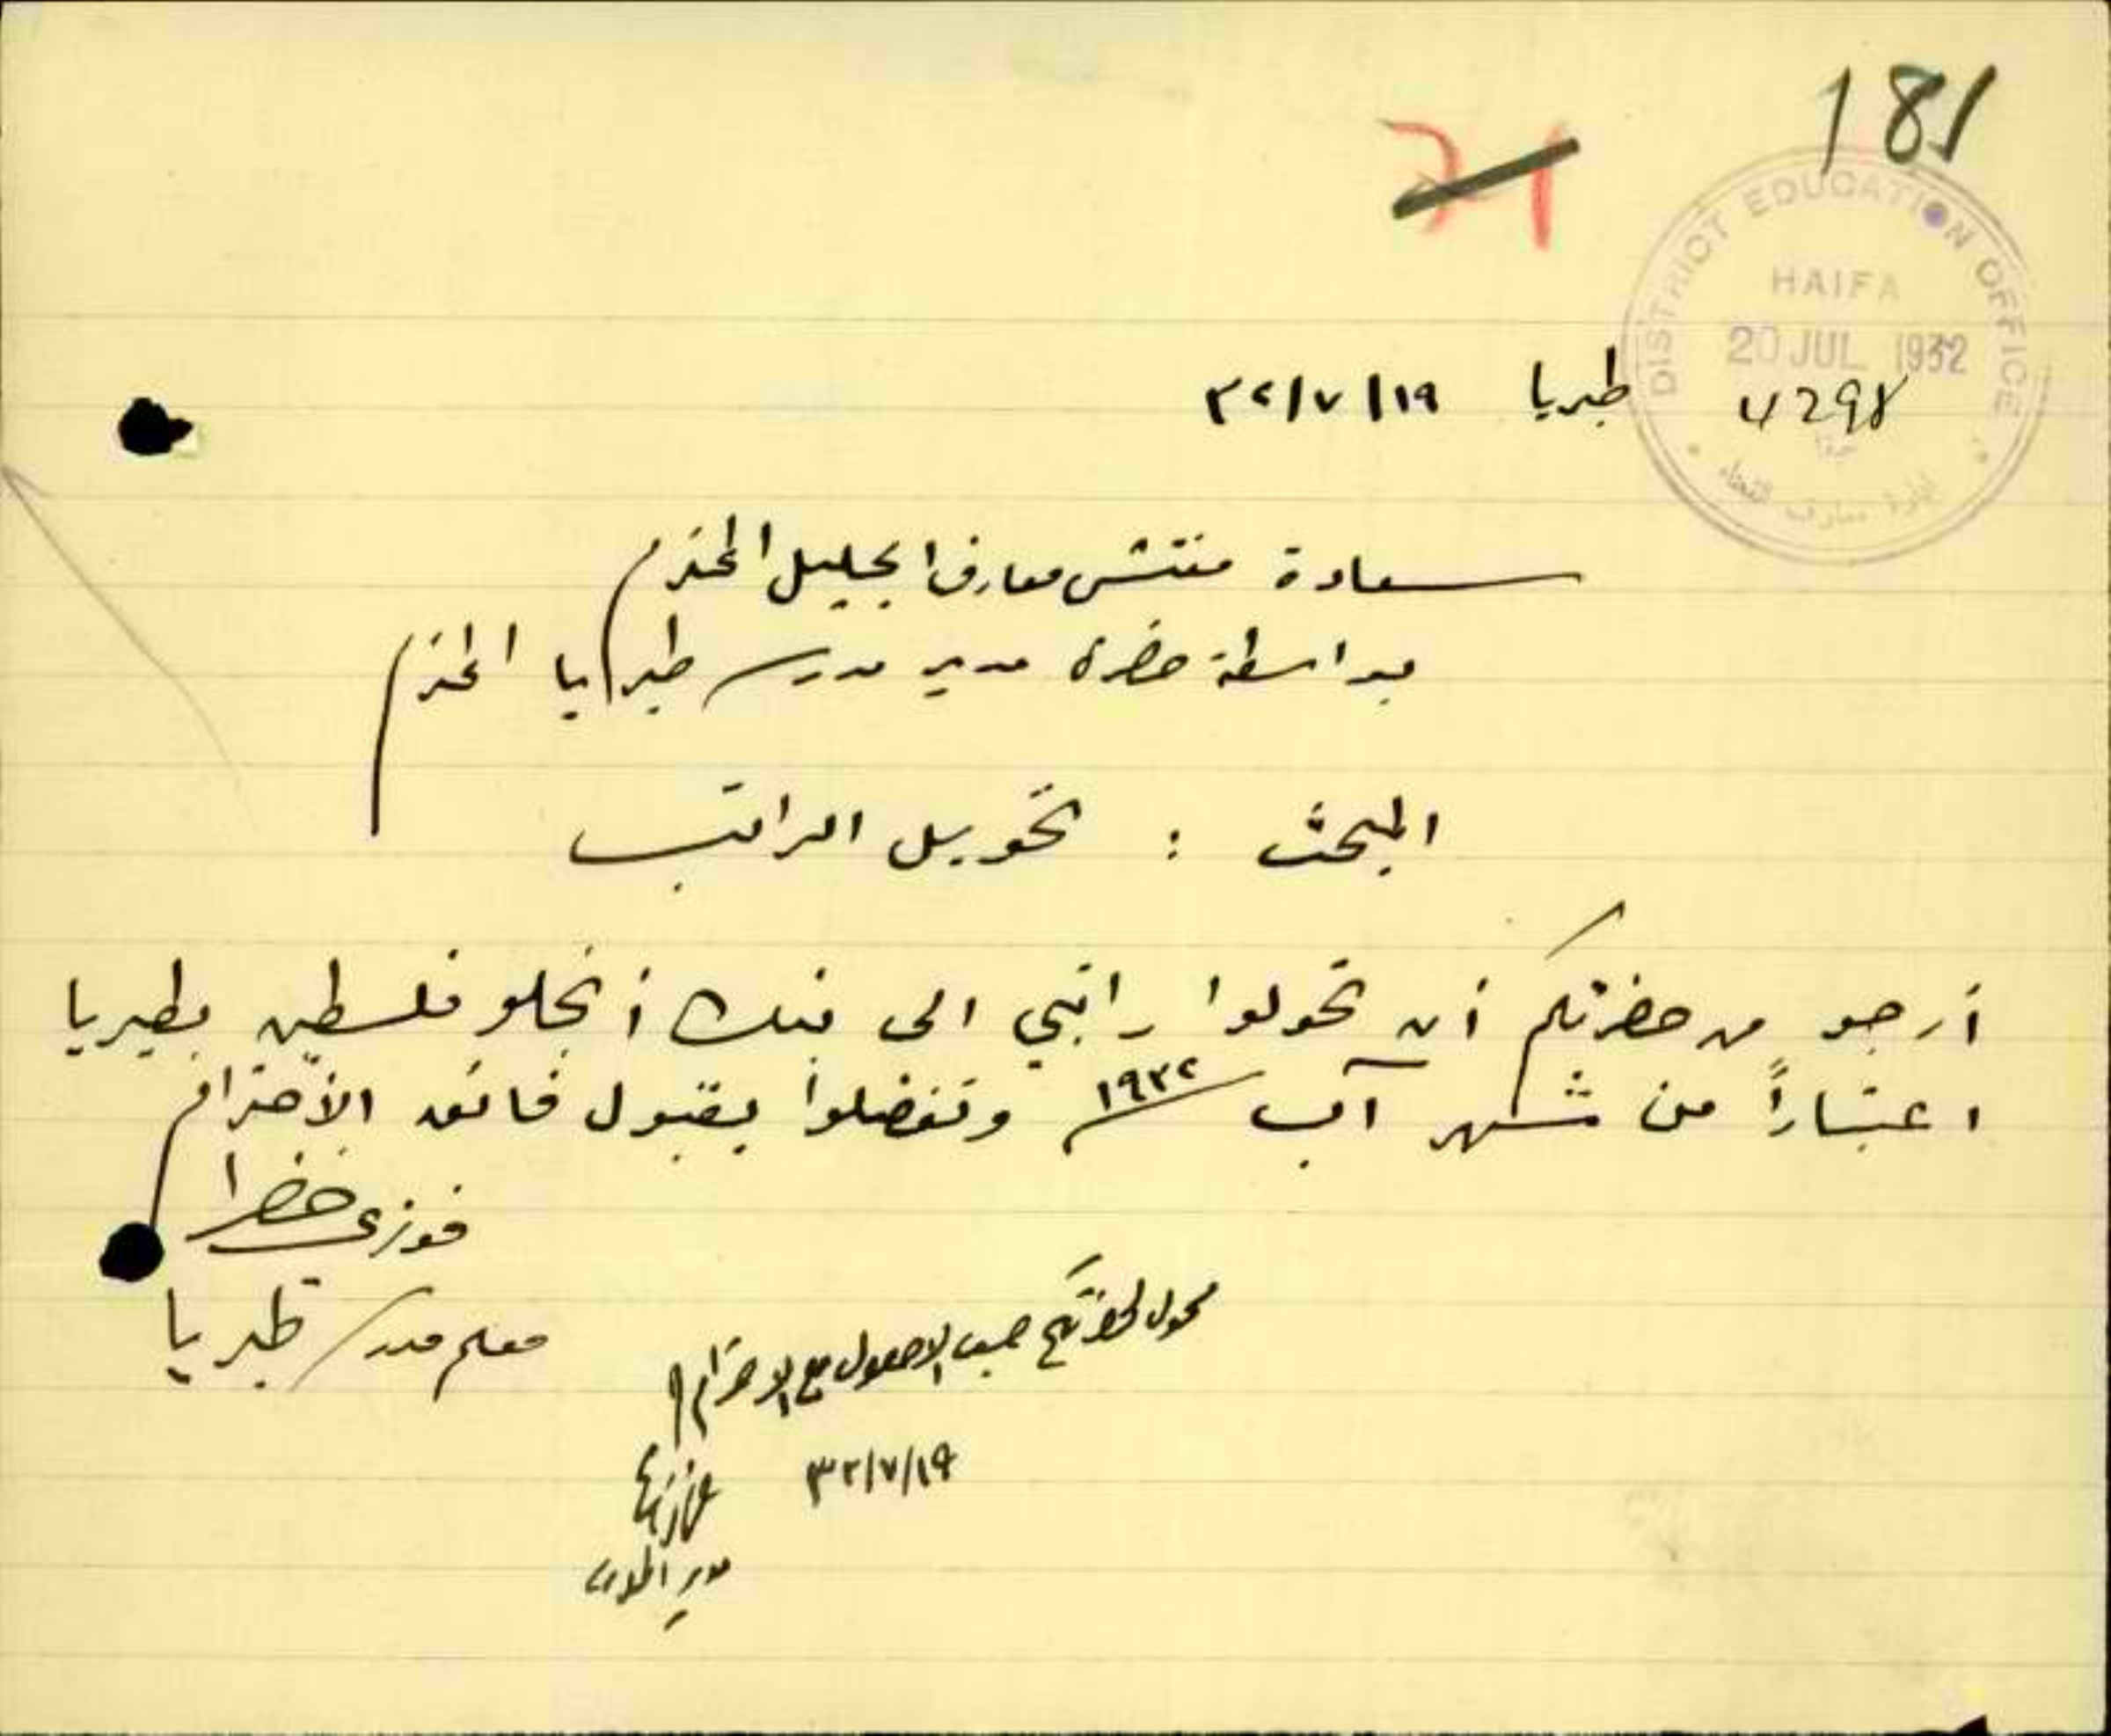 181
71
DISTRICT EDUCATION OFFICE
HAIFA
20 JUL 1932
حيفا
ادارة معارف القضاء
4298
طبريا ١٩/٧/٣٢
سعادة مفتش معارف الجليل المحترم
بواسطة حضرة مدير مدرسة طبريا المحترم
المبحث : تحويل الراتب
أرجو من حضرتكم أن تحولوا راتبي الى بنك أنجلو فلسطين بطبريا
اعتباراً من شهر آب ١٩٣٢ وتفضلوا بقبول فائق الأحترام
فوزي خضرا
معلم مدرسة طبريا
محول لحضرتكم حسب الاصول مع الاحترام
١٩/٧/٣٢
مدير المدرسة